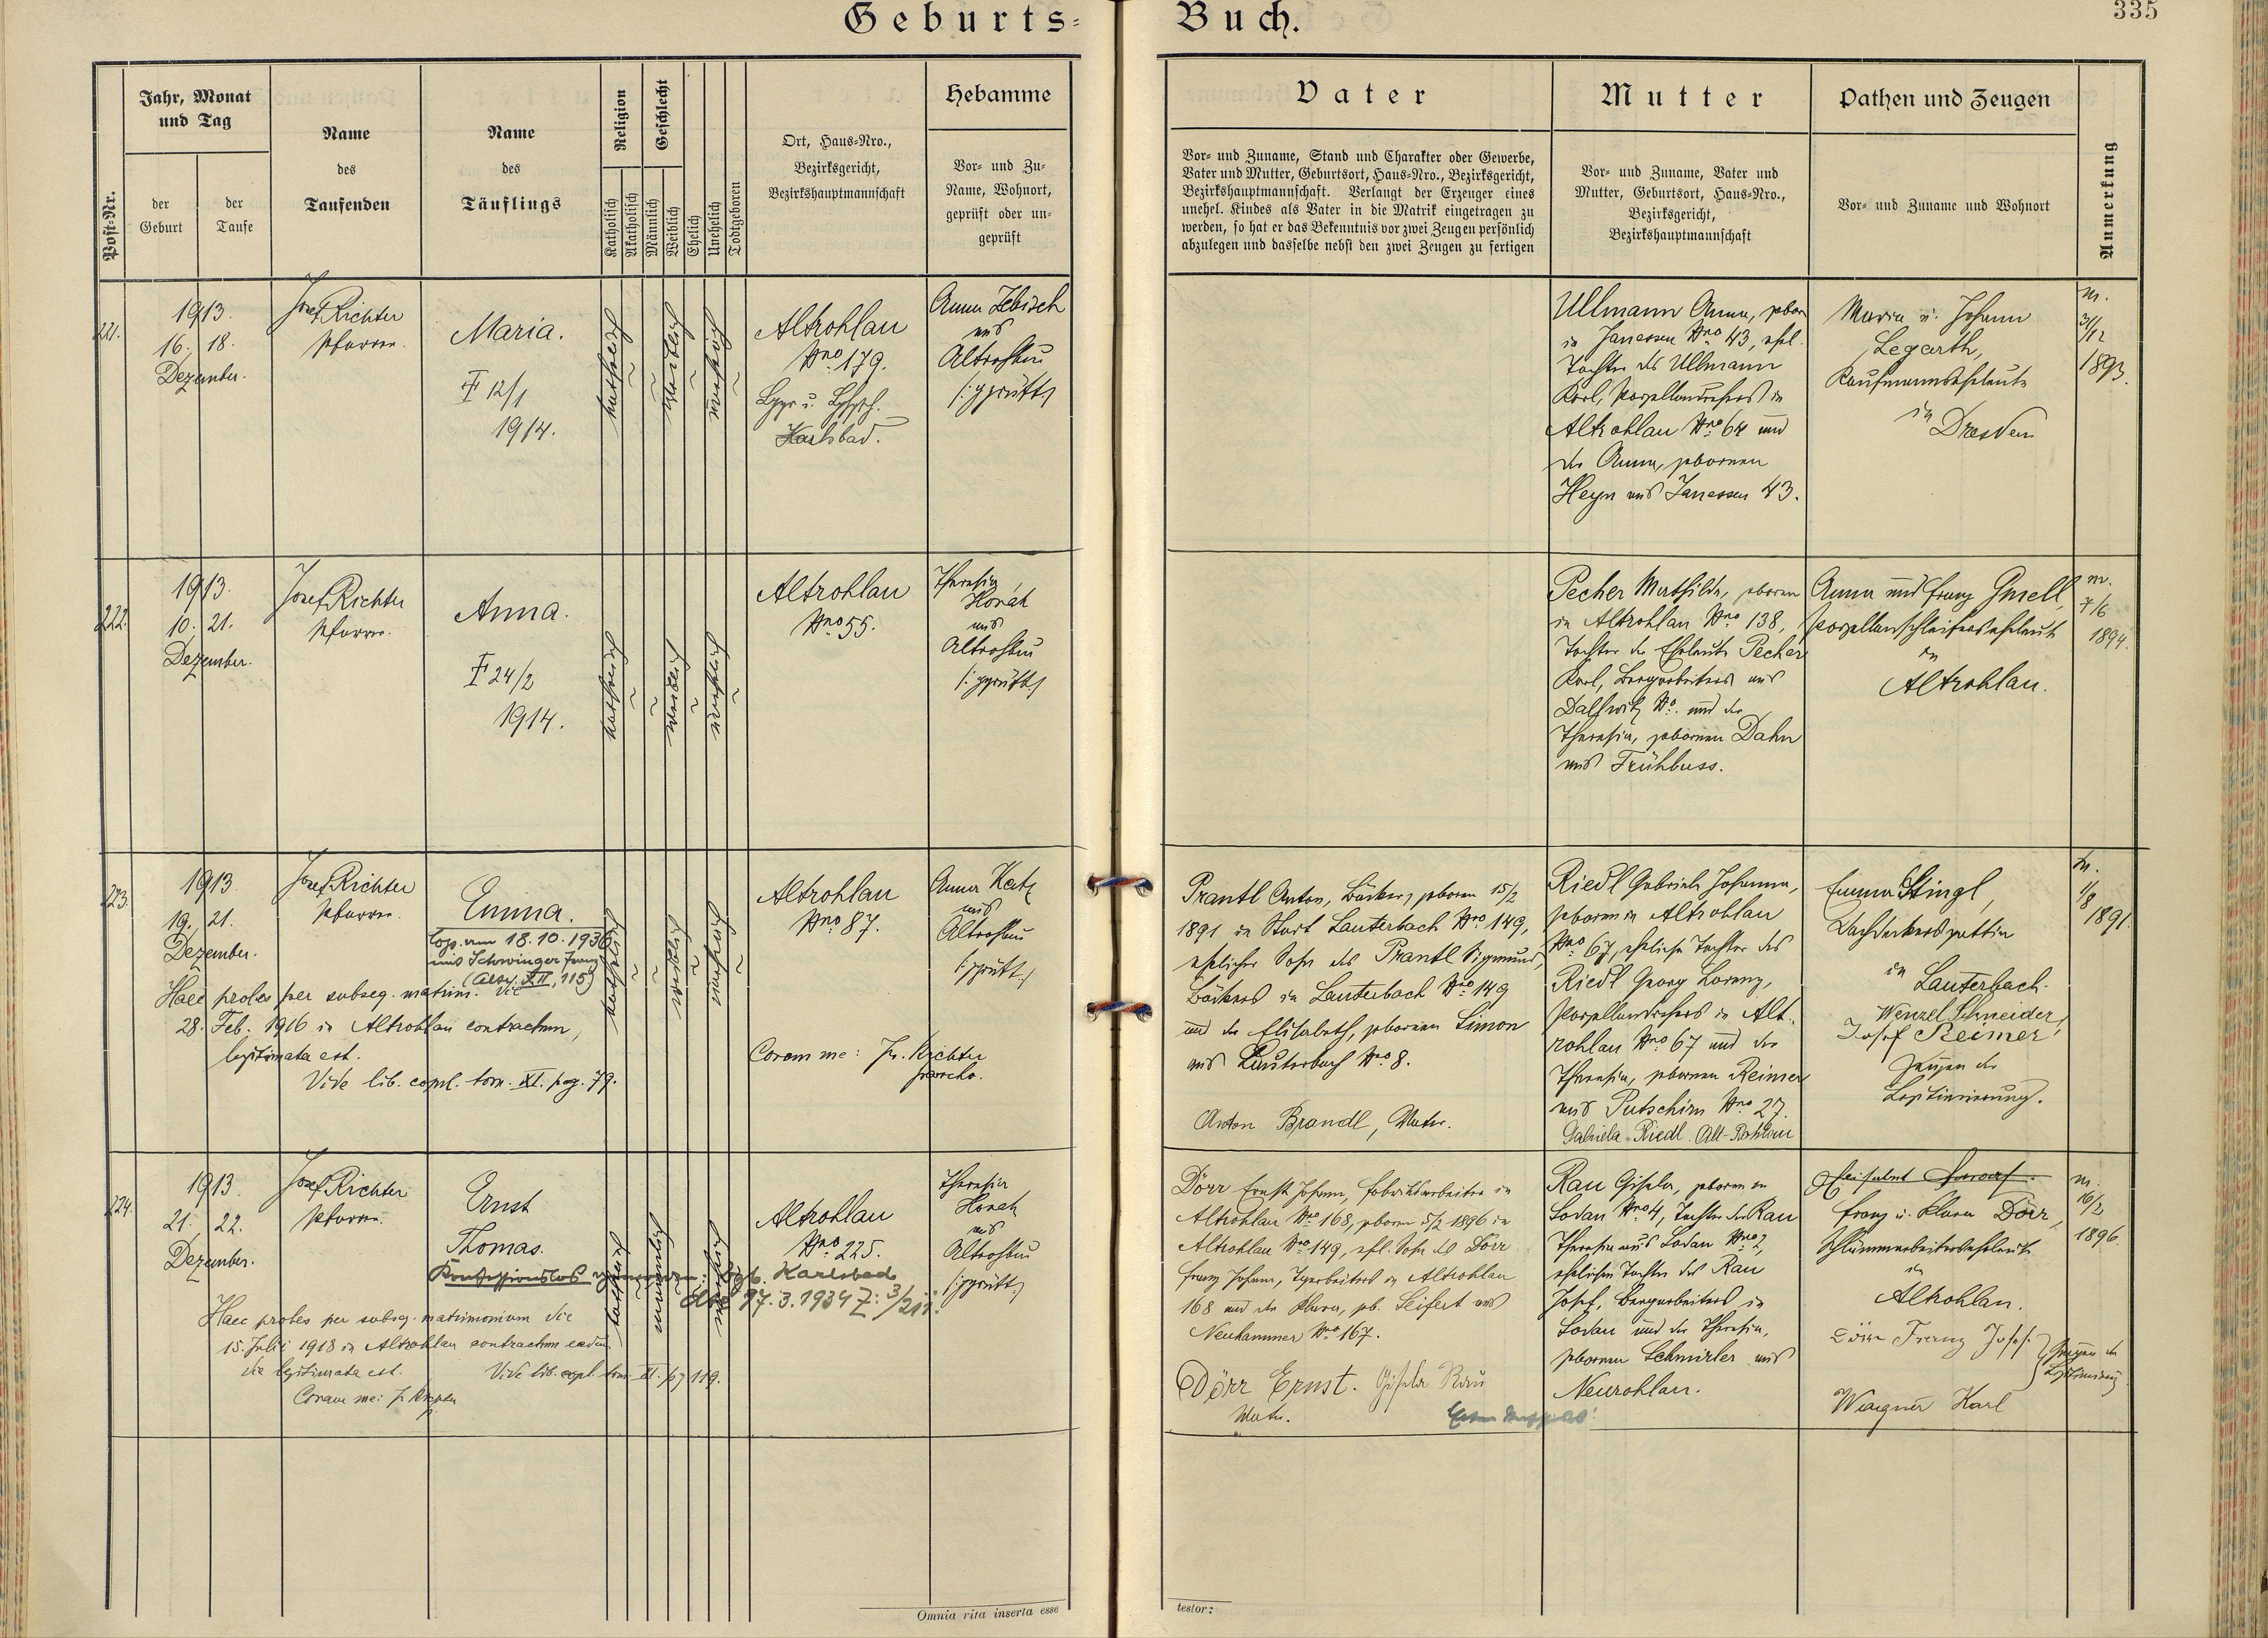 Geburts-
Buch.
335
Post-Nr.
Jahr, Monat
und Tag
der
Geburt
der
Taufe
Name
des
Taufenden
Name
des
Täuflings
Religion
Katholisch
Akatholisch
Geschlecht
Männlich
Weiblich
Ehelich
Unehelich
Todtgeboren
Ort, Haus-Nro.,
Bezirksgericht,
Bezirkshauptmannschaft
Hebamme
Vor- und Zu-
Name, Wohnort,
geprüft oder un-
geprüft
Vater
Vor- und Zuname, Stand und Charakter oder Gewerbe,
Vater und Mutter, Geburtsort, Haus-Nro., Bezirksgericht,
Bezirkshauptmannschaft. Verlangt der Erzeuger eines
unehel. Kindes als Vater in die Matrik eingetragen zu
werden, so hat er das Bekenntnis vor zwei Zeugen persönlich
abzulegen und dasselbe nebst den zwei Zeugen zu fertigen
Mutter
Vor- und Zuname, Vater und
Mutter, Geburtsort, Haus-Nro.,
Bezirksgericht,
Bezirkshauptmannschaft
Pathen und Zeugen
Vor- und Zuname und Wohnort
Anmerkung
221.
1913.
16. 18.
Dezember.
Josef Richter
Pfarrer.
Maria.
† 12/1
1914.
katholisch
weiblich
unehelich
Altrohlau
Nro 179.
Karlsbad.
Anna Zebisch
aus
Altrohlau
/: geprüft :/
Ullmann Anna, geboren
in Janessen Nro 43, ehel.
Tochter des Ullmann
Karl, Porzellandrehers in
Altrohlau Nro 64 und
der Anna, geborenen
Heyn aus Janessen 43.
Maria u. Johann
Legarth,
Kaufmannseheleute
in
Dresden
m.
3/12
1893.
222.
1913.
10. 21.
Dezember.
Josef Richter
Pfarrer.
Anna.
† 24/2
1914.
katholisch
weiblich
unehelich
Altrohlau
Nro 55.
Theresia
Horak
aus
Altrohlau
/: geprüft :/
Pecher Mathilde, geboren
in Altrohlau Nro 138,
Tochter der Eheleute Pecher
Karl, Bergarbeiters aus
Dallwitz No. und der
Theresia, geborenen Dahn
aus Frühbuss.
Anna und Franz Gsell,
Porzellanschleiferseheleute
in
Altrohlau.
m.
7/6
1894.
223.
1913
19. 21.
Dezember.
Josef Richter
Pfarrer.
Emma.
Cop. am 18.10.1936
mit Schwinger Franz
(Altr. XII, 115)
Haec proles per subseq. matrim. die
28. Feb. 1916 in Altrohlau contractum,
legitimata est.
Vide lib. copul. tom. XI. pag. 79.
katholisch
weiblich
unehelich
Altrohlau
Nro 87.
Coram me: Jos. Richter
parocho.
Anna Katz
aus
Altrohlau
/: geprüft :/
Prantl Anton, Bäcker, geboren 15/2
1891 in Stadt Lauterbach Nro 149,
ehelicher Sohn des Prantl Sigmund,
Bäckers in Lauterbach Nro 149
und der Elisabeth, geborenen Simon
aus Lauterbach Nro 8.
Anton Brandl, Vater.
Riedl Gabriele Johanna,
geboren in Altrohlau
Nro 67, eheliche Tochter des
Riedl Georg Lorenz,
Porzellandrehers in Alt-
rohlau Nro 67 und der
Theresia, geborenen Reimer
aus Putschirn Nro 27.
Gabriela Riedl Alt-Rohlau
Emma Stingl,
Dachdeckersgattin
in
Lauterbach.
Wenzel Schneider,
Josef Reimer,
Zeugen der
Legitimierung.
m.
1/8
1891.
224.
1913.
21. 22.
Dezember.
Josef Richter
Pfarrer.
Ernst
Thomas.
Konfessionslos geworden: Karlsbad
dto 27.3.1934 Z: 3/211
Haec proles per subseq. matrimonium die
15. Julii 1918 in Altrohlau contractum eadem
die legitimata est. Vide lib. copul. tom. XI. pg 119.
Coram me: J. Richter
katholisch
männlich
unehelich
Altrohlau
Nro 225.
Theresia
Horak
aus
Altrohlau
/: geprüft :/
Dörr Ernst Johann, Fabriksarbeiter in
Altrohlau Nro 168, geboren 5/2 1896 in
Altrohlau Nro 149, ehel. Sohn des Dörr
Franz Johann, Tagarbeiters in Altrohlau
168 und der Klara, geb. Seifert aus
Neuhammer Nro 167.
Dörr Ernst. Gisela Rau
Vater.
Rau Gisela, geboren in
Sodau Nro 4, Tochter der Rau
Theresia aus Sodau Nro 2,
ehelichen Tochter des Rau
Josef, Bergarbeiters in
Sodau und der Theresia,
geborenen Schmirler aus
Neurohlau.
Franz u. Klara Dörr,
in
Altrohlau.
Dörr Franz Josef
Wagner Karl
Zeugen der
Legitimierung
m.
16/2
1896.
Omnia rita inserta esse
testor: